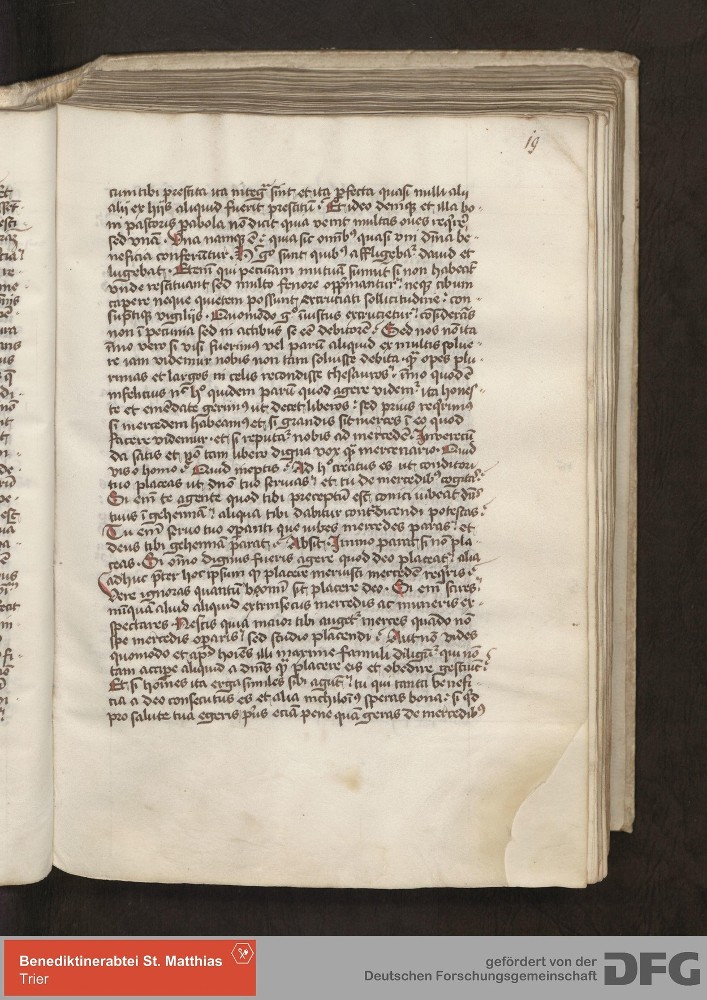 19
cuncti tibi prestita ita integra sint et ita perfecta quasi nulli alii
alii ex hiis aliquid fuerit prestitum. Et ideo denique et illa bo-
ni pastoris parabola nō dicit quia venit multas oues reqrẽ
sed vnā. Vna namque ē qua sic omibꝰ quasi vni diuina be-
neficia conferūtur. Hii sunt quibꝰ affligebat dauid et
lugebat. Etenī qui pecuniam mutuā sumit si non habeat
vnde restituant sed multo fenore opprimantur neque cibum
capere neque quietem possunt extruciati sollicitudine con-
sūptique vigiliis. Quomodo iustus extrucietur cōsiderās
non ī pecunia sed in actibus se eē debitorē. Sed nos nō ita
īmo vero si visi fuerimus vel parū aliquid ex multis solue-
re iam videmur nobis non tam soluisse debita quā opes plu-
rimas et largos in celis recondisse thesauros. īmo quod ē
infelicius quidem parū quod agere videmur ita hones-
te et emēdate gerimꝰ ut decet liberos sed prius reqrimꝰ
si mercedem habeamꝰ et si grandis sit merces ī eo quod
facere videmur et si reputatur nobis ad mercedē. Inverecū-
da satis et tam libero digna vox quā mercenario. Quid
vis o homo. Quid ineptis. Ad hoc creatus es ut conditori
tuo placeas ut dnō tuo seruias et tu de mercedibꝰ cogitas
Si enī te agente quod tibi preceptū est conici iubeat dn̄s
tuus ī gehennam aliqua tibi dabitur contradicendi potestas.
Tu enī seruo tuo operanti que iubes mercedes paras et
deus tibi gehennam parat. Absit. Immo parat si non pla-
ceas. Si omīo dignus fueris agere quod deo placeat alia
adhuc preter hoc ipsum quod placere meruisti mercedem reqris
Vere ignoras quantū boni sit placere deo. Si enī scires
nūquā aliud aliquid extrinsecus mercedis ac muneris ex-
spectares. Nescis quia maior tibi augetur merces quādo nō
spe mercedis operaris sed studio placendi. Aut nō vides
quomodo et apud hoīes illi maxime famuli diligūtur qui nō
tam accipere aliquid a dnīs quā placere eis et obedire gestiūt
Et si homīes ita erga similes sibi agūt tu qui tanta benefi-
cia a deo consecutus es et alia nichilomīꝰ speras bona si qd
pro salute tua egeris priꝰ eciā pene quā geras de mercedibꝰ
Benediktinerabtei St. Matthias
Trier
gefördert von der
Deutschen Forschungsgemeinschaft
DFG